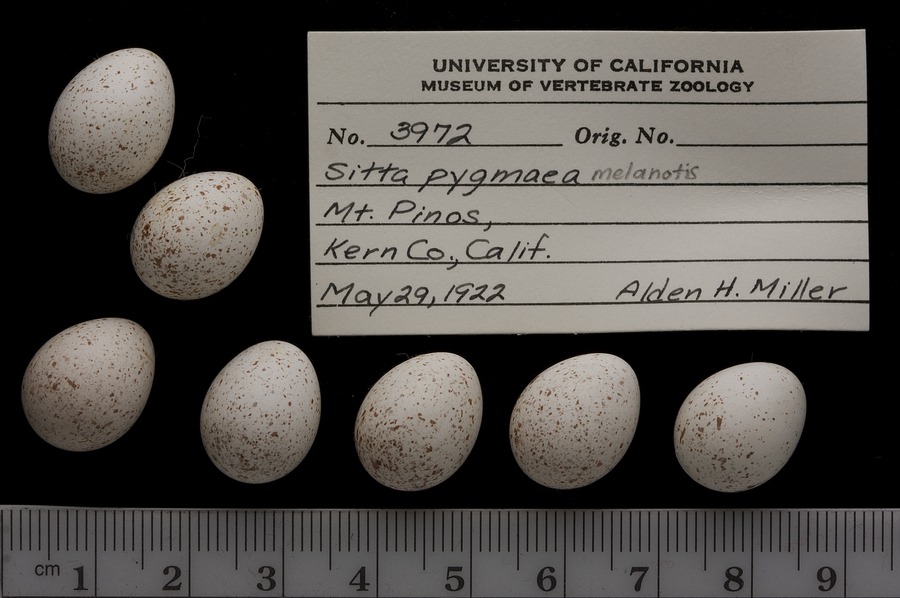 UNIVERSITY OF CALIFORNIA
MUSEUM OF VERTEBRATE ZOOLOGY
No. 3972 Orig. No.
Sitta pygmaea melanotis
Mt. Pinos,
Kern Co., Calif.
May 29, 1922 Alden H. Miller
cm 1 2 3 4 5 6 7 8 9